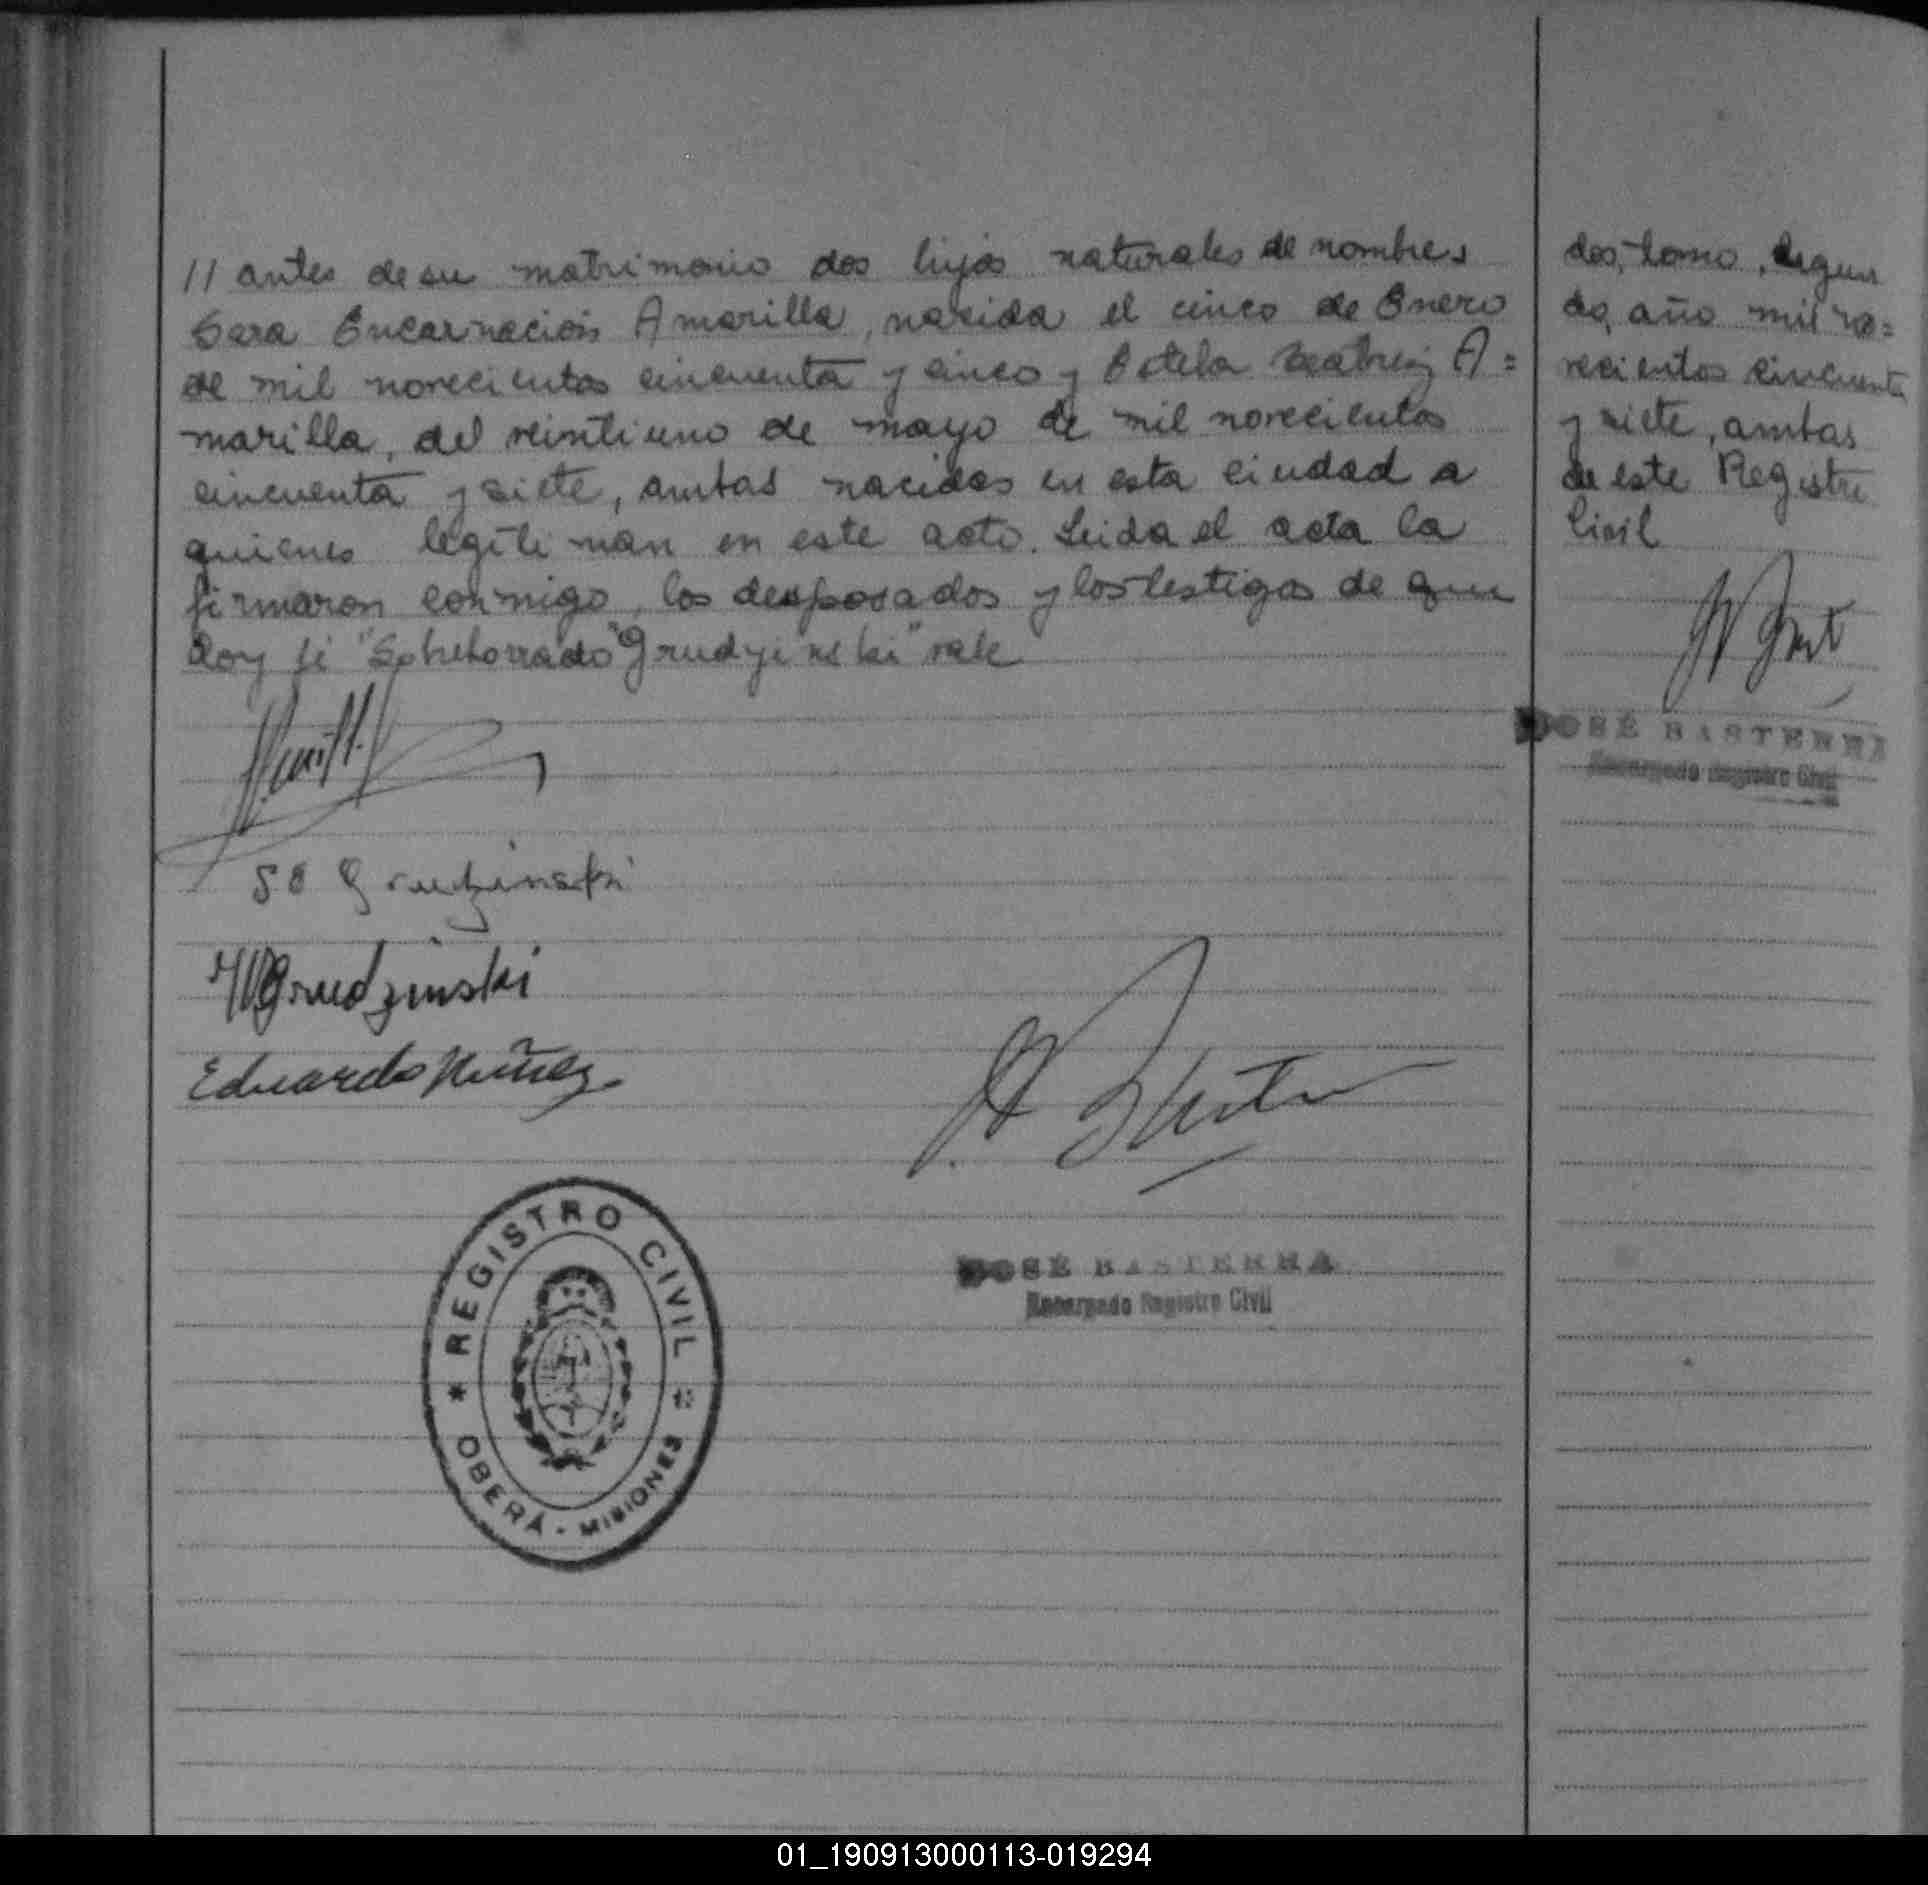 // antes de su matrimonio dos hijas naturales de nombres
Sara Encarnación Amarilla, nacida el cinco de Enero
de mil novecientos cincuenta y cinco y Estela Beatriz A=
marilla, del veintiuno de mayo de mil novecientos
cincuenta y siete, ambas nacidas en esta ciudad a
quienes legitiman en este acto. Leida el acta la
firmaron conmigo, los desposados y los testigos de que
doy fé "Sobreborrado" Grudzinski" vale
S E Grudzinski
W Grudzinski
Eduardo Nuñez
JOSÉ BASTERRA
Encargado Registro Civil
REGISTRO CIVIL
OBERÁ - MISIONES
dos, tomo, segun
do, año mil no=
vecientos cincuenta
y siete, ambas
de este Registro
Civil
JOSÉ BASTERRA
Encargado Registro Civil
01_190913000113-019294